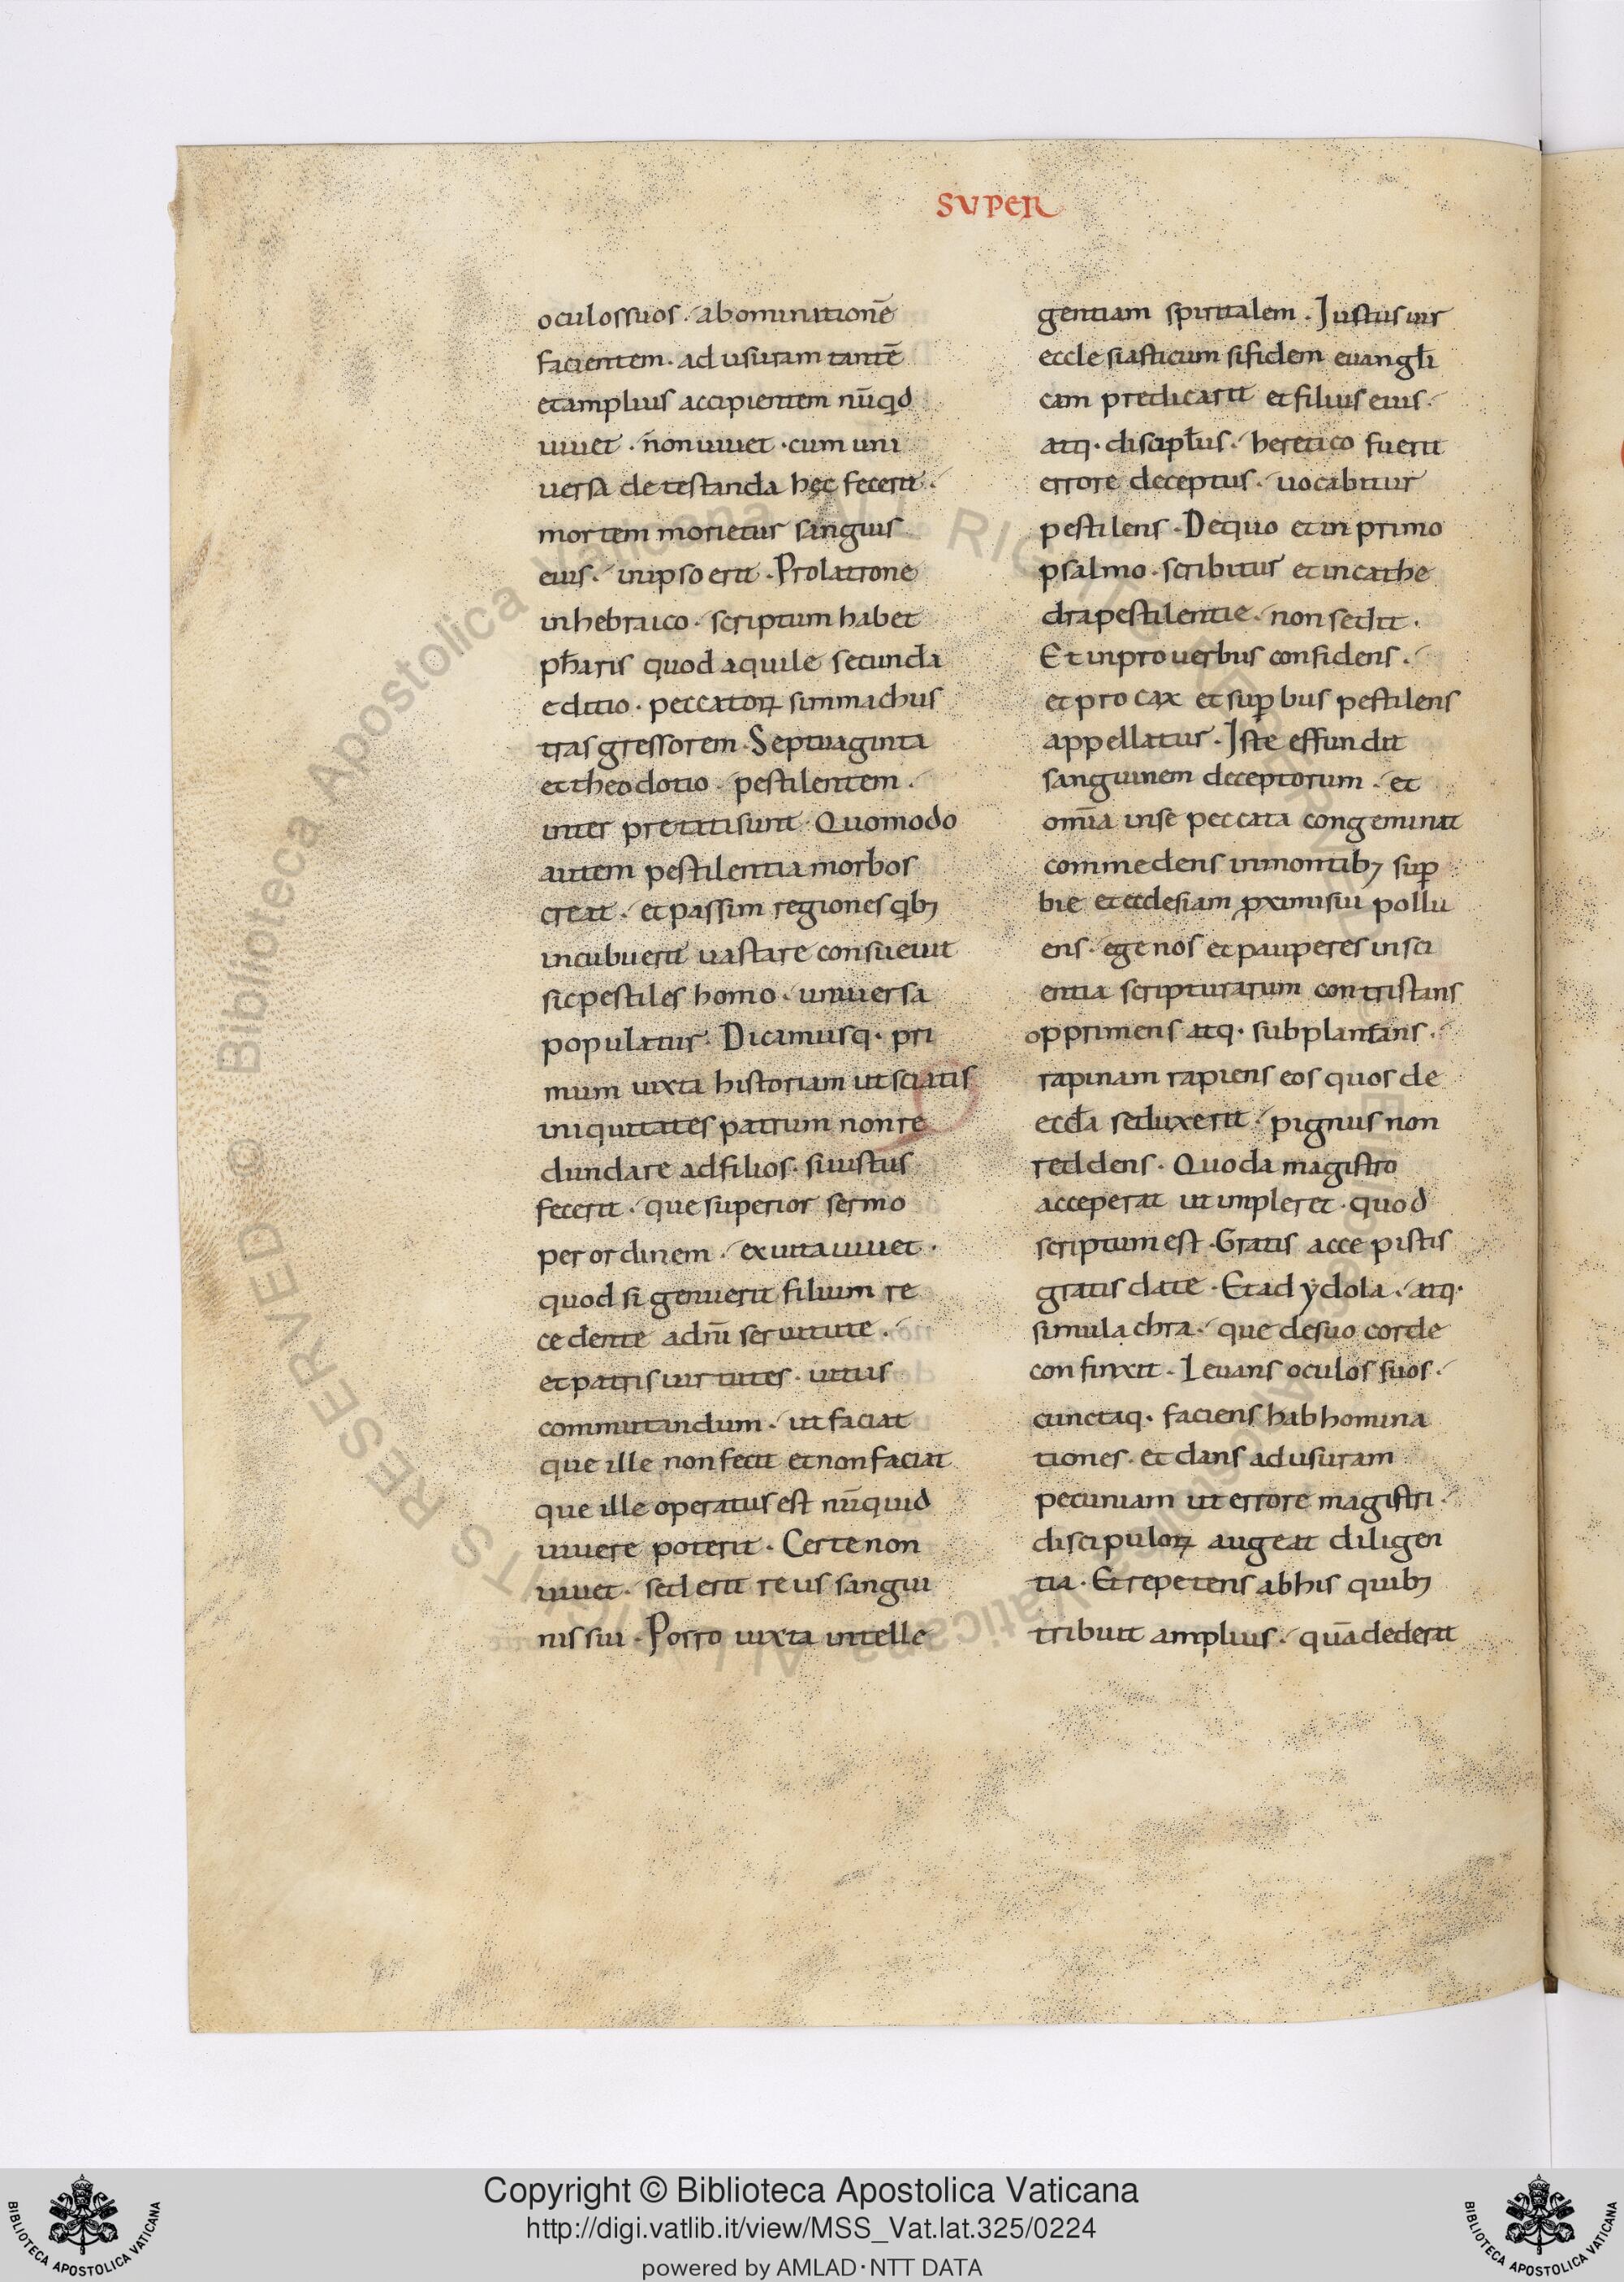 SUPER
oculossuos. abominationē
facientem. ad usuram tantē
et amplius accipientem nūqd
uiuet. non uiuet. cum uni
uersa detestanda hęc fecerit.
mortem morietur sanguis
eius. in ipso erit. Pro latrone
in hebraico. scriptum habet
pharis quod aquile secunda
editio. peccatoꝝ simmachus
trasgressorem. Septuaginta
et theodotio. pestilentem.
inter pretati sunt. Quomodo
autem pestilentia morbos
creat. et passim regiones qibꝫ
incubuerit uastare consueuit
sic pestiles homo. uniuersa
populatur. Dicamusq. pri
mum iuxta historiam ut sciatis
iniquitates patrum non re
dundare ad filios. si iustus
fecerit. que superior sermo
per ordinem. ex uita uiuet.
quod si genuerit filium re
cedente a dn̄i seruitute.
et patris uirtutes. uitiis
commutandum. ut faciat
que ille non fecit et non faciat
que ille operatus est nūquid
uiuere poterit. Certe non
uiuet. sed erit reus sangui
nis sui. Porro iuxta intelle
gentiam spiritalem. Iustus uir
ecclesiasticum si fidem euangl̄i
cam predicarit et filius eius.
atq. discipl̄us. heretico fuerit
errore deceptus. uocabitur
pestilens. De quo et in primo
psalmo. scribitur et in cathe
dra pestilentie. non sedit.
Et in prouerbiis confidens.
et procax et suꝑbus pestilens
appellatur. Iste effundit
sanguinem deceptorum. et
om̄ia in se peccata congeminat
commedens in montibꝫ suꝑ
bie et ecclesiam ꝓximi sui pollu
ens. egenos et pauperes in sci
entia scripturarum contristans
opprimens atq. subplantans.
rapinam rapiens eos quos de
eccl̄a seduxerit. pignus non
reddens. Quod a magistro
acceperat ut impleret. quod
scriptum est. Gratis accepistis
gratis date. Et ad ydola. atq.
simulachra. que de suo corde
confinxit. Leuans oculos suos.
cunctaq. faciens habhomina
tiones. et dans ad usuram
pecuniam ut errore magistri.
discipuloꝝ augeat diligen
tia. Et repetens ab his quibꝫ
tribuit amplius. quā dederit
Copyright © Biblioteca Apostolica Vaticana
http://digi.vatlib.it/view/MSS_Vat.lat.325/0224
powered by AMLAD·NTT DATA
BIBLIOTECA APOSTOLICA VATICANA
BIBLIOTECA APOSTOLICA VATICANA